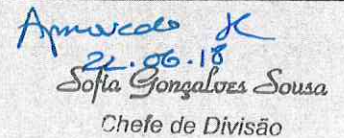 Aprovado
22.06.18
Sofia Gonçalves Sousa
Chefe de Divisão